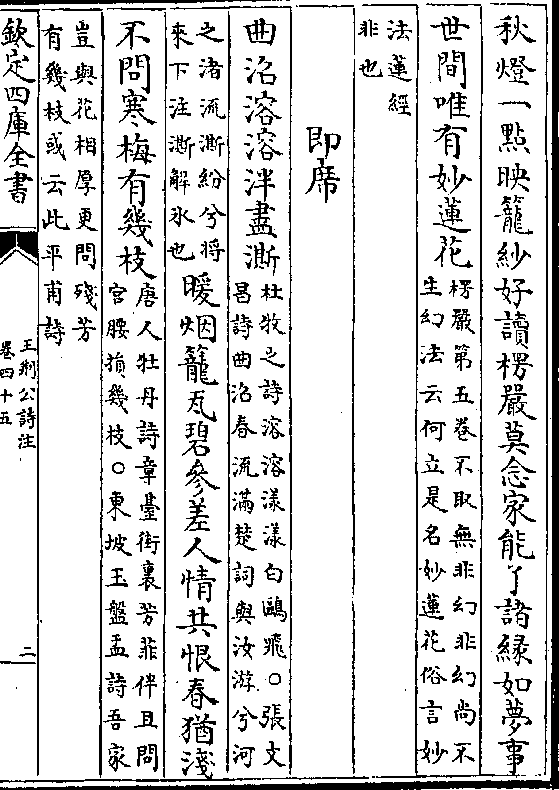 秋燈一點映籠紗好讀楞嚴莫念家能了諸緣如夢事
世間唯有妙蓮花楞嚴第五卷不取無非幻非幻尚不
生幻法云何立是名妙蓮花俗言妙
法蓮經
非也
即席
曲沼溶溶泮盡澌杜牧之詩溶溶漾漾白鷗飛○張文
昌詩曲沼春流滿楚詞與汝游兮河
之渚流澌紛兮將
來下注澌解氷也
暖烟籠瓦碧參差人情共恨春猶淺
不問寒梅有幾枝唐人牡丹詩章臺街裏芳菲伴且問
宫腰損幾枝○東坡玉盤盂詩吾家
豈與花相厚更問殘芳
有幾枝或云此平甫詩
欽定四庫全書
王荆公詩注
卷四十五
二